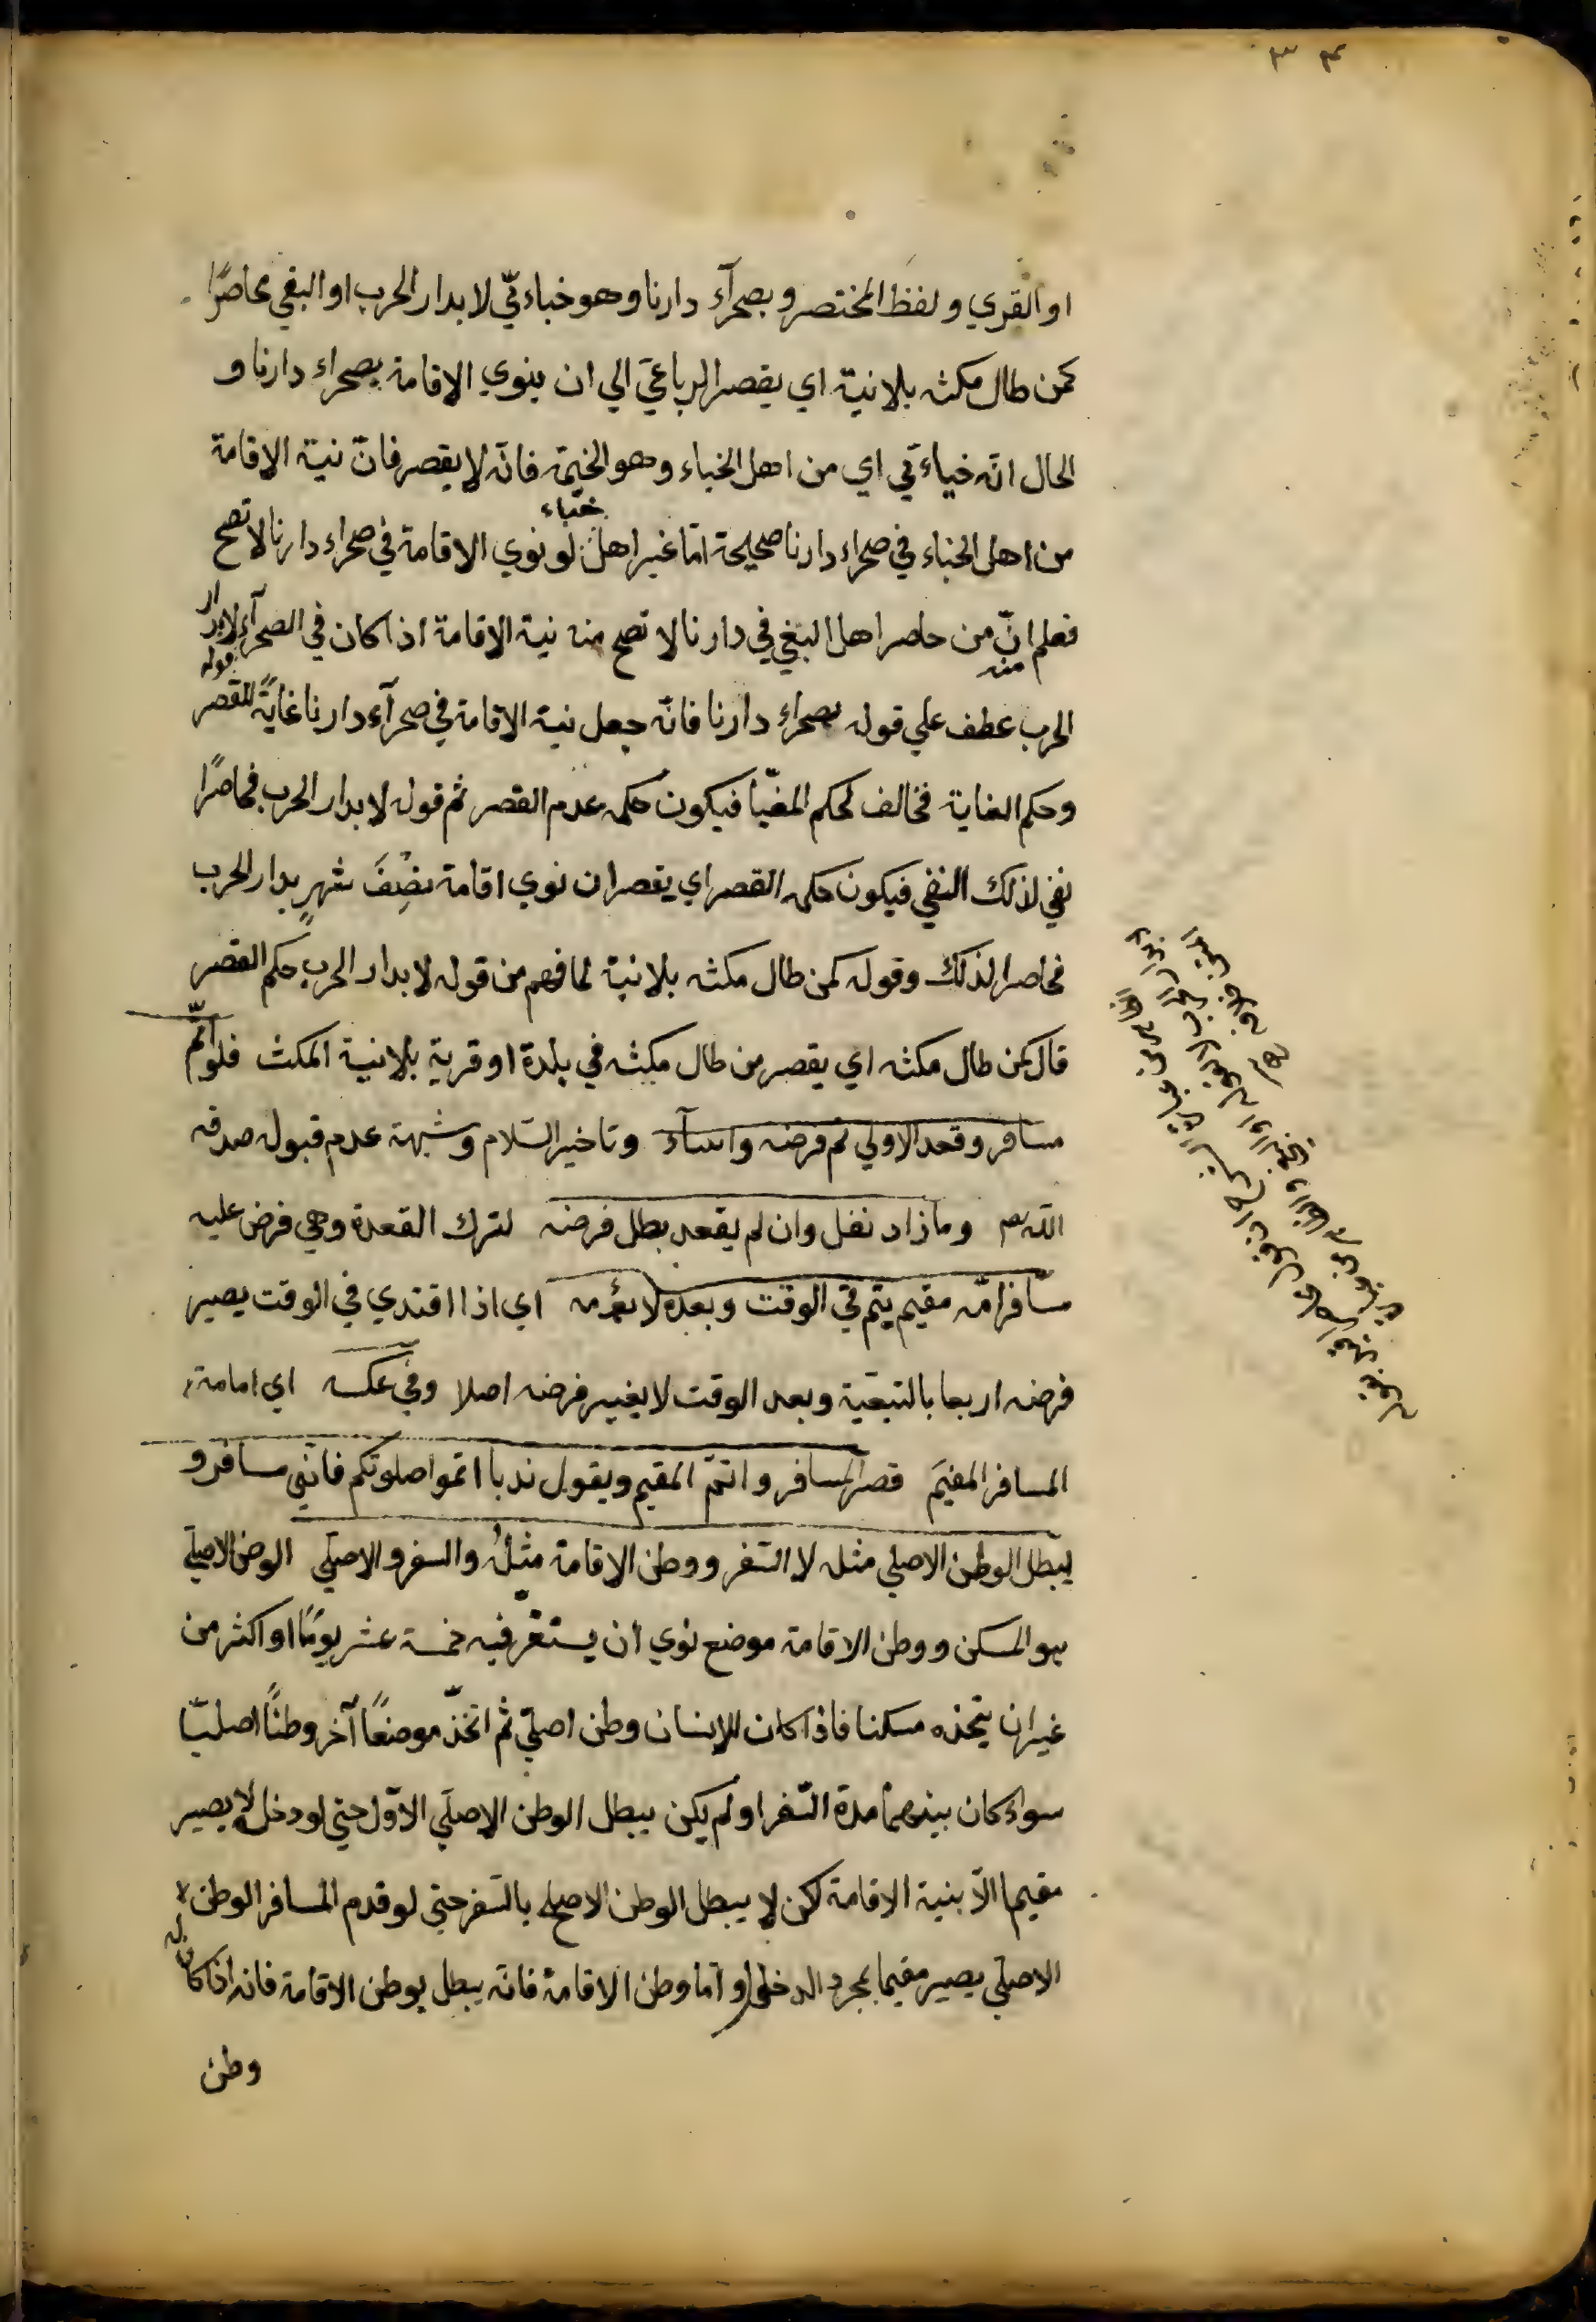 ٣٤
او القري ولفظ المختصر وبصحرآء دارنا وهو خباءيّ لا بدار الحرب او البغي محاصرًا
كمن طال مكثه بلا نية اي يقصر الرباعي الي ان ينوي الاقامة بصحراء دارنا و
الحال انّه خباءيّ اي من اهل الخباء وهو الخيمة فانّه لا يقصر فانّ نية الاقامة
خباء
من اهل الخباء في صحراء دارنا صحيحة امّا غير اهل لو نوي الاقامة في صحراء دارنا لا تصح
فعلم انّ من حاصر اهل البغي في دارنا لا تصح منه نية الاقامة اذا كان في الصحرآء لا بدار
الحرب عطف علي قوله بصحراء دارنا فانّه جعل نية الاقامة في صحرآء دارنا غايةً للقصر
وحكم الغاية مخالف لحكم المغيّا فيكون حكمه عدم القصر ثم قوله لا بدار الحرب محاصرًا
نفي لذلك النفي فيكون حكمه القصر اي يقصر ان نوي اقامة نصف شهرٍ بدار الحرب
محاصرا لذلك وقوله كمن طال مكثه بلا نية لما فهم من قوله لا بدار الحرب حكم القصر
قال كمن طال مكثه اي يقصر من طال مكثه في بلدة او قرية بلا نية المكث فلو اتمّ
مسافر وقعد الاولي تم فرضه واسآء وتاخير السّلام وشبهة عدم قبول صدقه
اللّه تعم وما زاد نفل وان لم يقعد بطل فرضه لترك القعدة وهي فرض عليه
مسافر امّه مقيم يتم في الوقت وبعده لا يؤمه اي اذا اقتدي في الوقت يصير
فرضه اربعا بالتبعيّة وبعد الوقت لا يغير فرضه اصلا وفي عكسه اي امامة
المسافر المقيمَ قصر المسافر واتمّ المقيم ويقول ندبا اتموا صلوتكم فانّي مسافر و
يبطل الوطن الاصلي مثله لا السّفر ووطن الاقامة مثلُه والسفر والاصلي الوطن الاصلي
هو المسكن ووطن الاقامة موضع نوي ان يستقرّ فيه خمسة عشر يومًا او اكثر من
غير ان يتخذه مسكنا فاذا كان للانسان وطن اصليّ ثم اتخذ موضعًا آخر وطنًا اصليّا
سواء كان بينهما مدة السّفر او لم يكن يبطل الوطن الاصلي الاوّل حتي لو دخله لا يصير
مقيما الّا بنية الاقامة لكن لا يبطل الوطن الاصلي بالسّفر حتي لو قدم المسافر الوطن
الاصلي يصير مقيما بمجرد الدخول وامّا وطن الاقامة فانّه يبطل بوطن الاقامة فانه اذا كان له
وطن